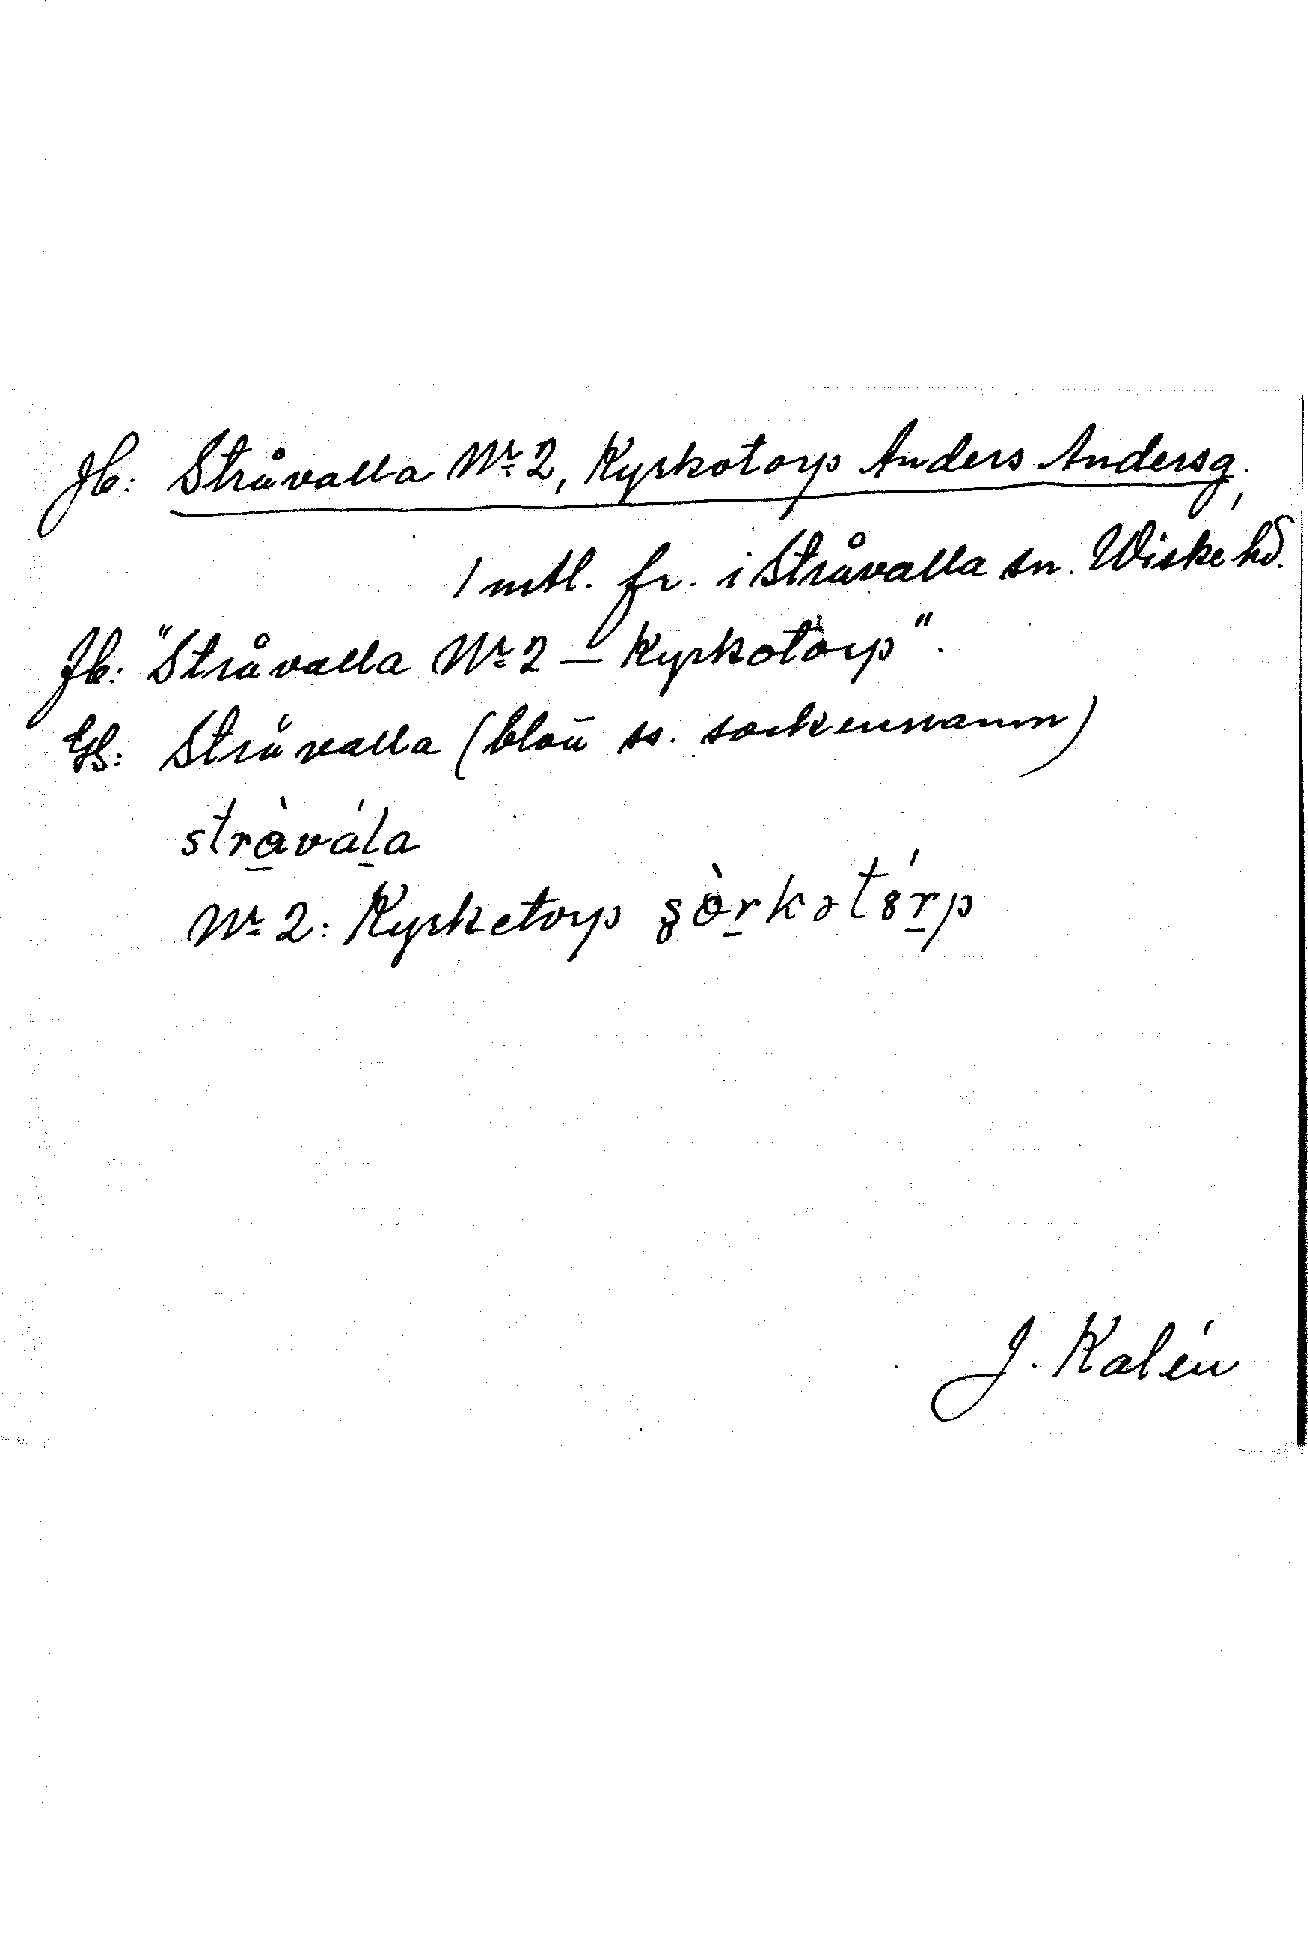 Jb: Stråvalla Nr 2, Kyrkotorp Anders Andersg.,
1 mtl. fr. i Stråvalla sn. Wiske hd.
Jb: "Stråvalla Nr 2 – Kyrkotorp".
Stråvalla (blott ss. sockennamn)
stràvála
Nr 2: Kyrketorp
J. Kalén